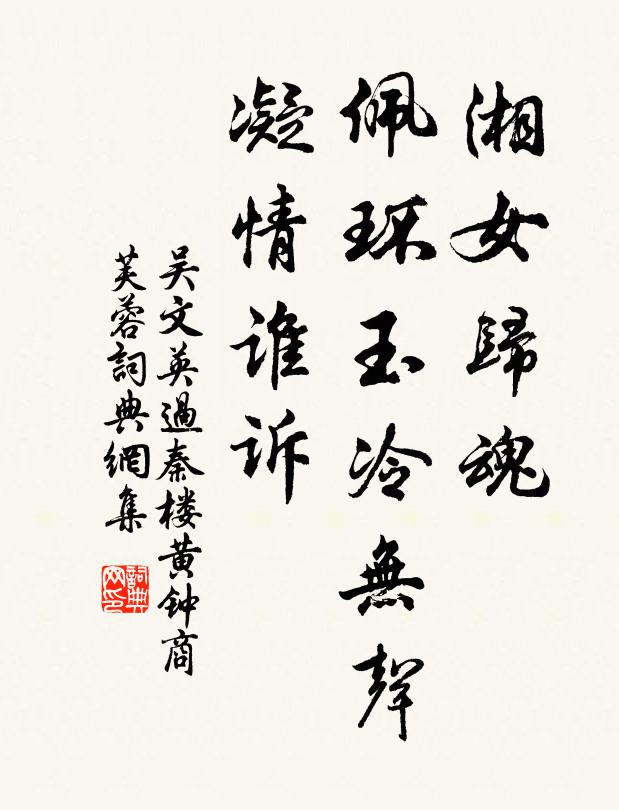 湘女歸魂
佩环玉冷無聲
凝情誰訴
吴文英過秦楼黄钟商
芙蓉詞典網集
詞典网印